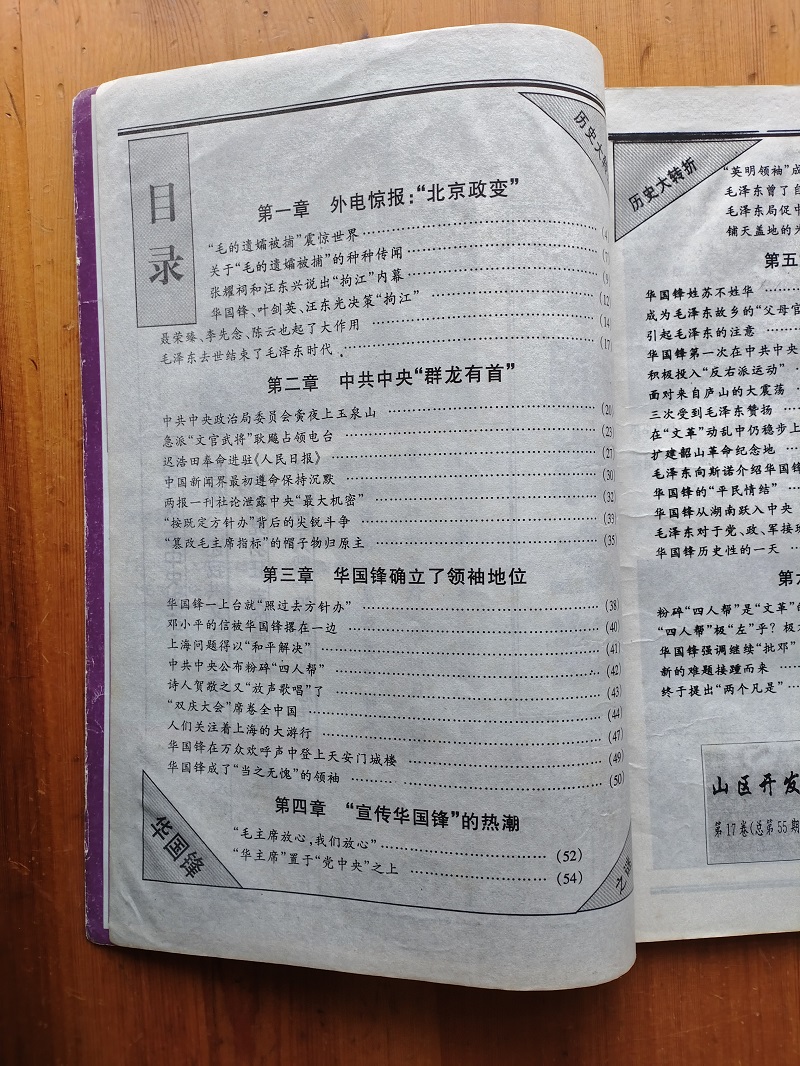 历史大转
目录
第一章 外电惊报:“北京政变”
“毛的遗孀被捕”震惊世界 (4)
关于“毛的遗孀被捕”的种种传闻 (7)
张耀祠和汪东兴说出“拘江”内幕 (9)
华国锋、叶剑英、汪东光决策“拘江” (12)
聂荣臻、李先念、陈云也起了大作用 (14)
毛泽东去世结束了毛泽东时代 (17)
第二章 中共中央“群龙有首”
中共中央政治局委员会夤夜上玉泉山 (20)
急派“文官武将”耿飚占领电台 (23)
迟浩田奉命进驻《人民日报》 (27)
中国新闻界最初遵命保持沉默 (30)
两报一刊社论泄露中央“最大机密” (32)
“按既定方针办”背后的尖锐斗争 (33)
“篡改毛主席指标”的帽子物归原主 (35)
第三章 华国锋确立了领袖地位
华国锋一上台就“照过去方针办” (38)
邓小平的信被华国锋撂在一边 (40)
上海问题得以“和平解决” (41)
中共中央公布粉碎“四人帮” (42)
诗人贺敬之又“放声歌唱”了 (43)
“双庆大会”席卷全中国 (44)
人们关注着上海的大游行 (47)
华国锋在万众欢呼声中登上天安门城楼 (49)
华国锋成了“当之无愧”的领袖 (50)
第四章 “宣传华国锋”的热潮
“毛主席放心,我们放心” (52)
“华主席”置于“党中央”之上 (54)
华国锋
之谜
历史大转折
“英明领袖”成
毛泽东曾了自
毛泽东局促中
铺天盖地的
第五
华国锋姓苏不姓华
成为毛泽东故乡的“父母官
引起毛泽东的注意
华国锋第一次在中共中央
积极投入“反右派运动”
面对来自庐山的大震荡
三次受到毛泽东赞扬
在“文革”动乱中仍稳步上
扩建韶山革命纪念地
毛泽东向斯诺介绍华国锋
华国锋的“平民情结”
华国锋从湖南跃入中央
毛泽东对于党、政、军接班
华国锋历史性的一天
第六
粉碎“四人帮”是“文革”的
“四人帮”极“左”乎?极
华国锋强调继续“批邓”
新的难题接踵而来
终于提出“两个凡是”
山区开发
第17卷(总第55期